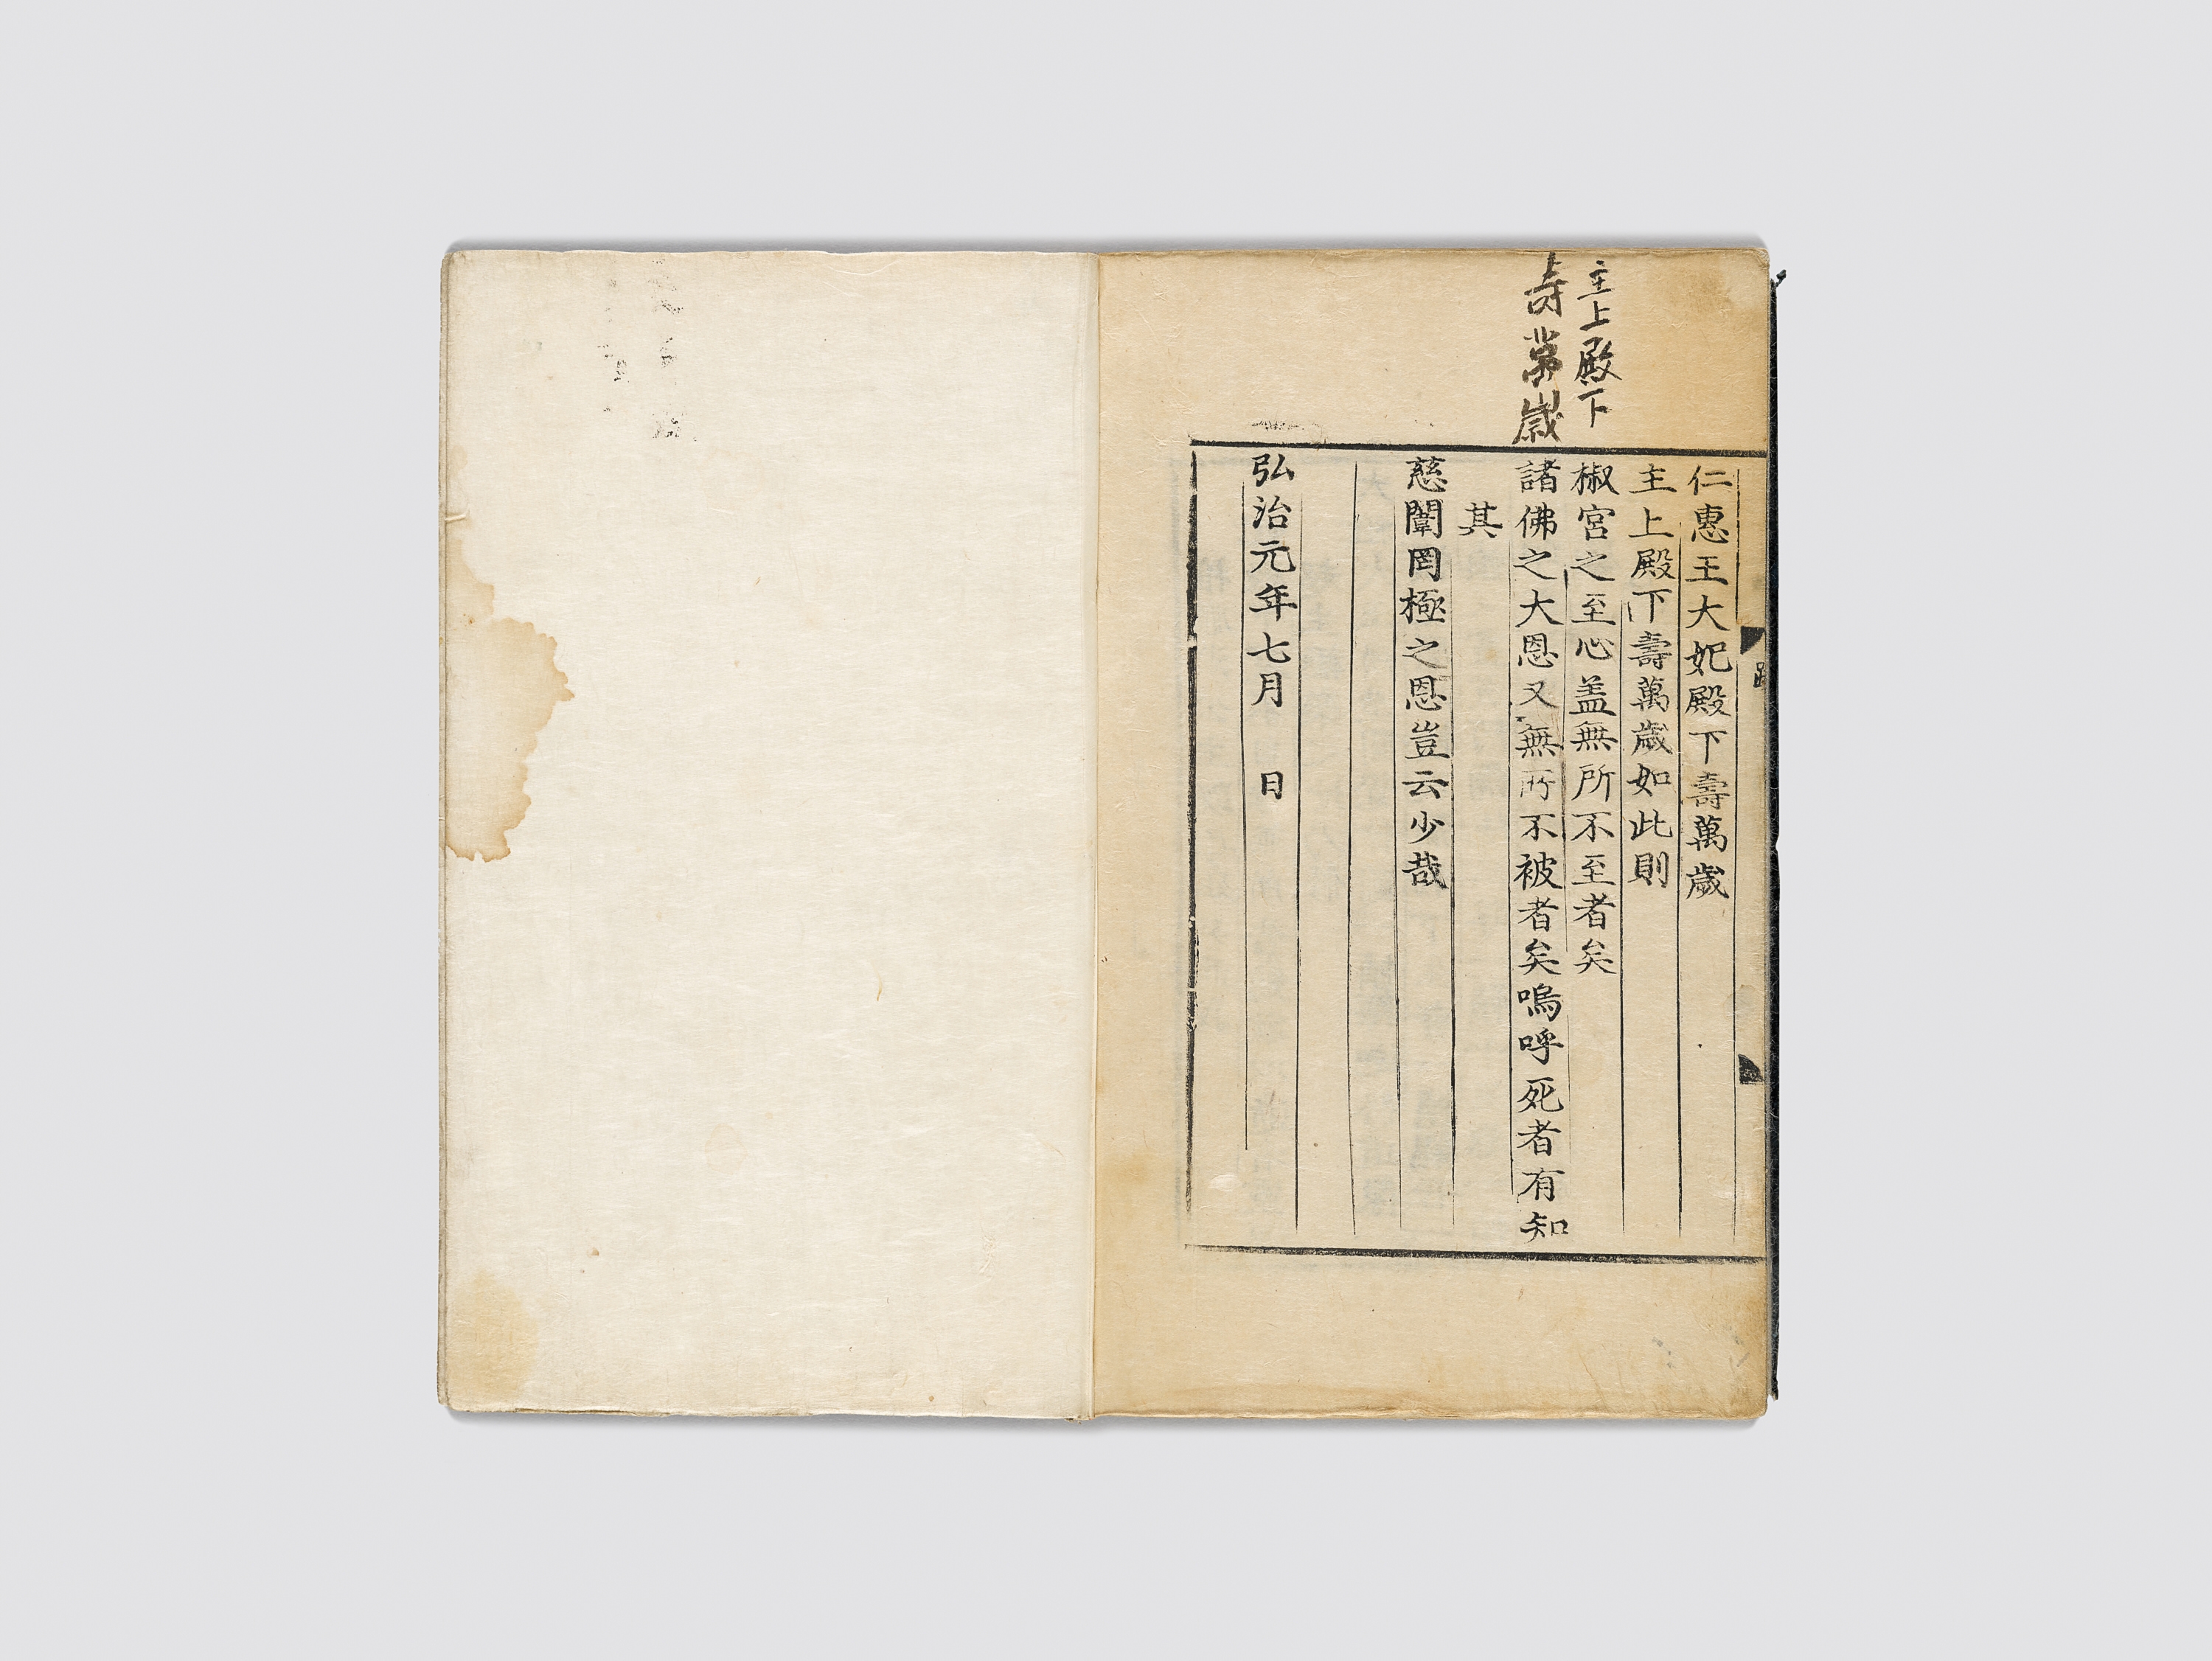 主上殿下
壽萬歲
仁惠王大妃殿下壽萬歲
主上殿下壽萬歲如此則
椒宮之至心盖無所不至者矣
諸佛之大恩又無所不被者矣嗚呼死者有知
其
慈闈罔極之恩豈云少哉
弘治元年七月 日